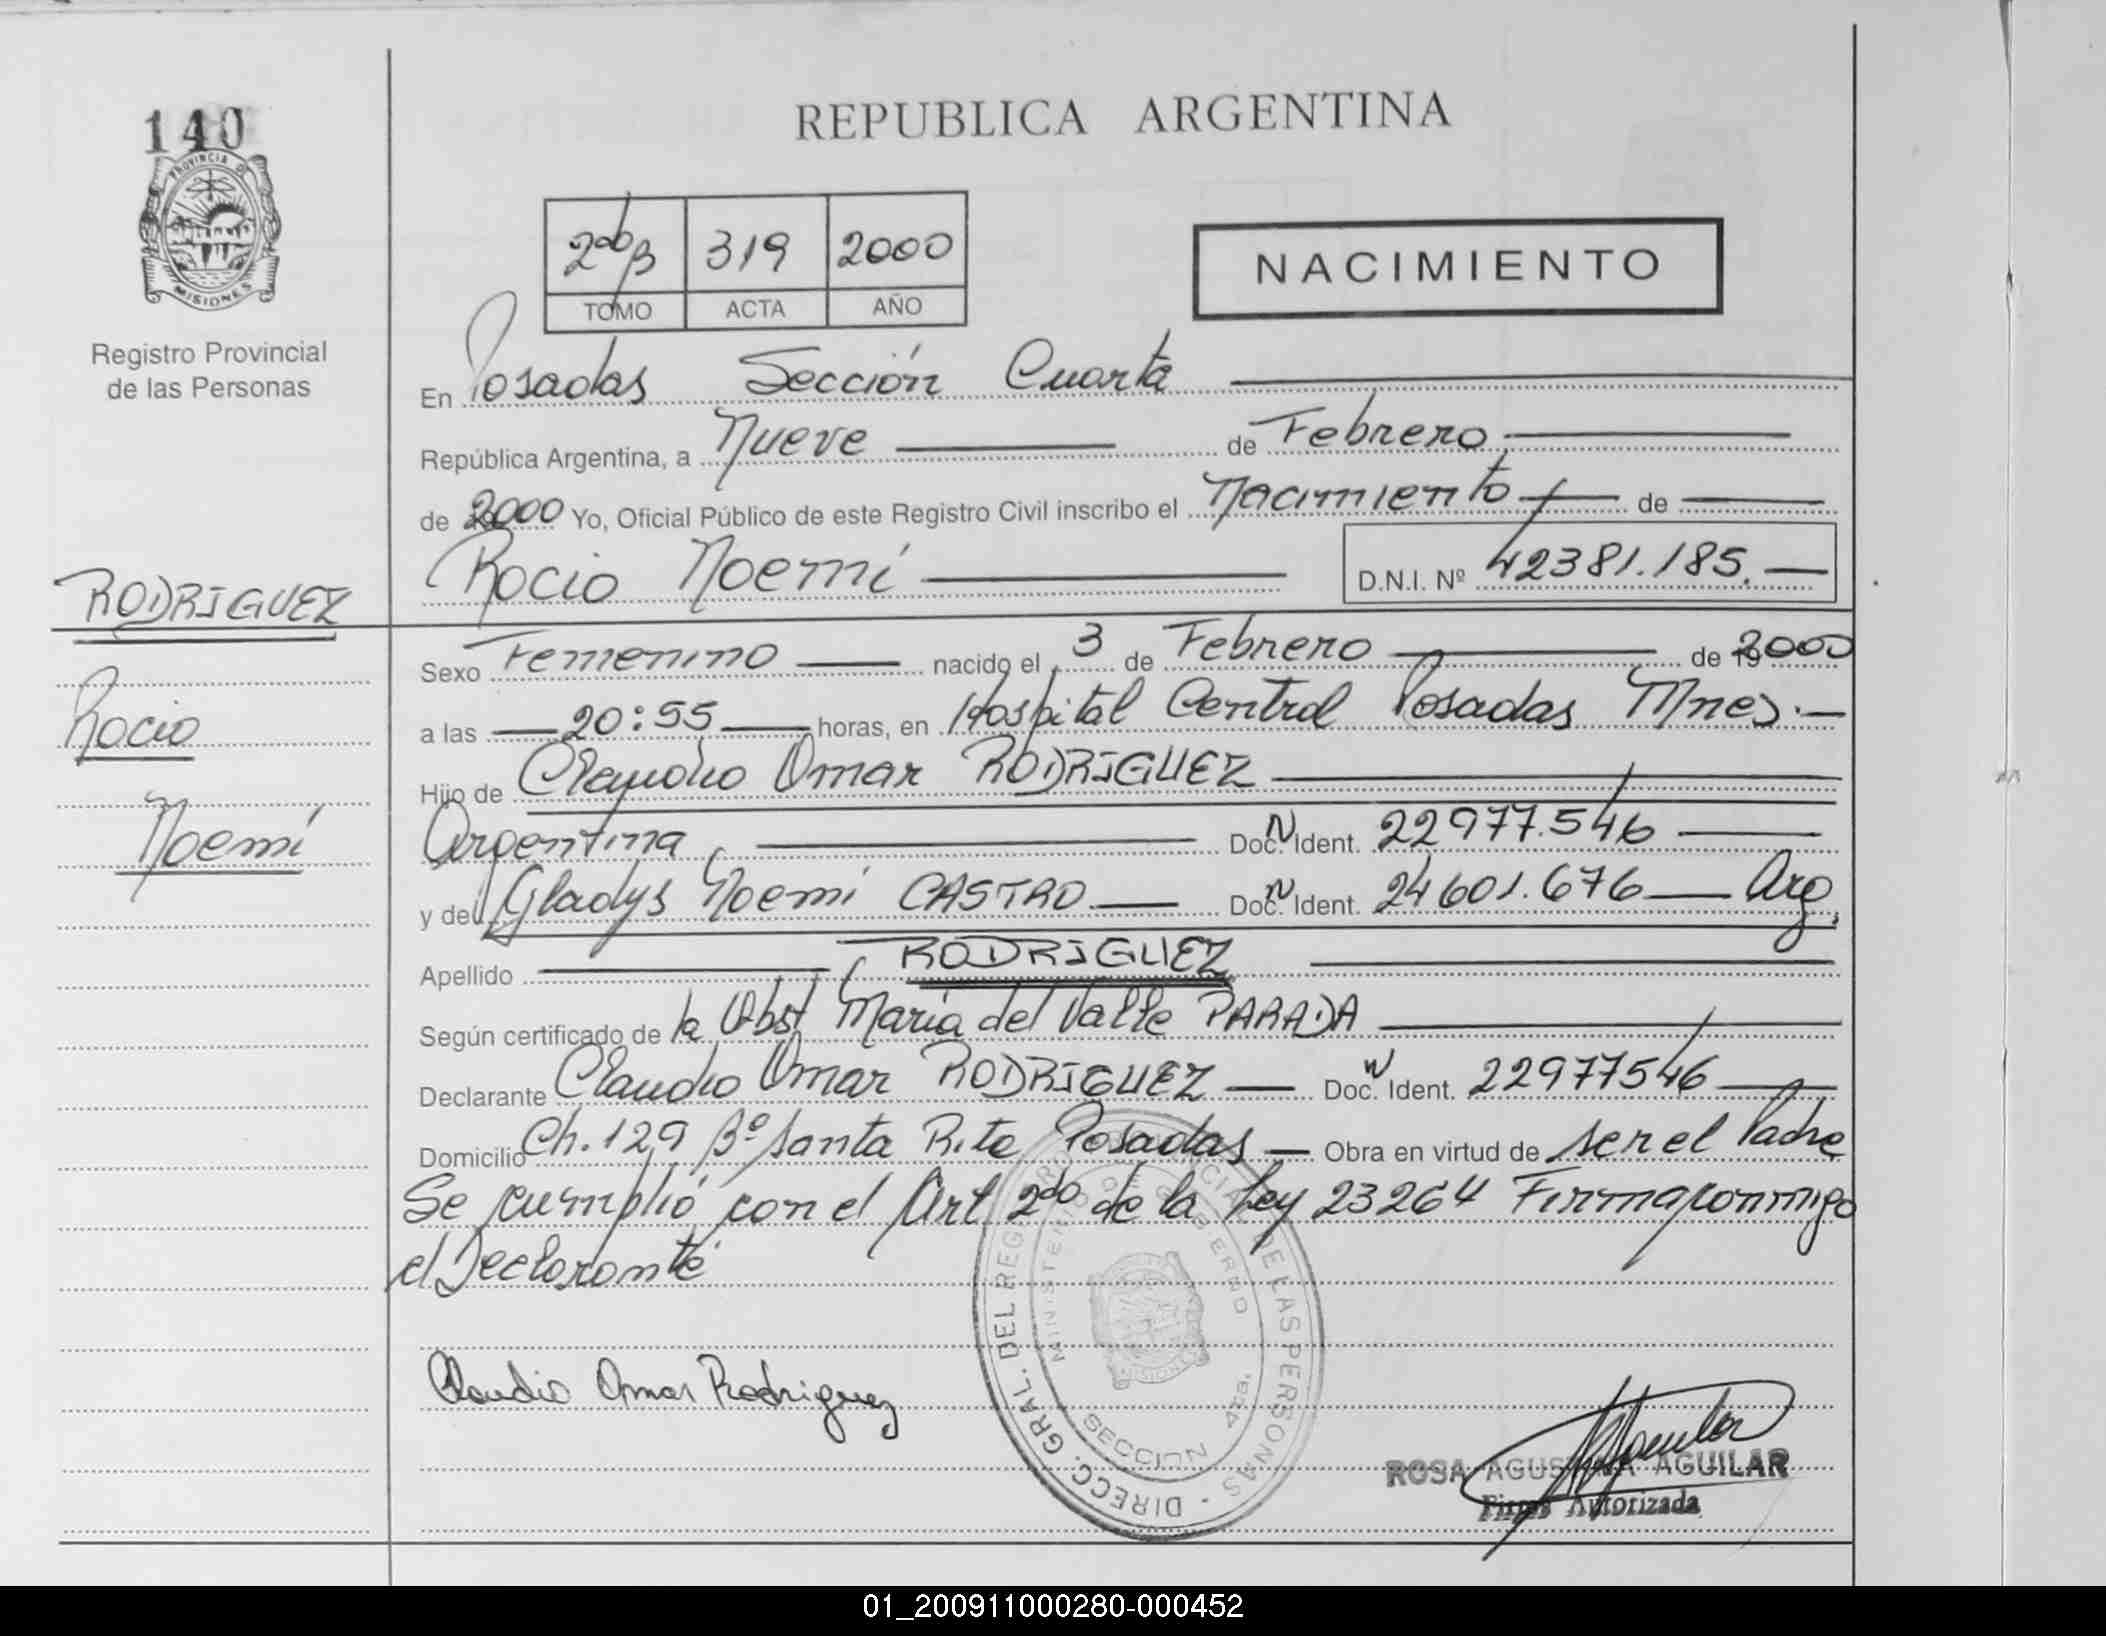 140
PROVINCIA DE
MISIONES
Registro Provincial
de las Personas
RODRIGUEZ
Rocio
Noemí
REPUBLICA ARGENTINA
2do B 319 2000
TOMO ACTA AÑO
NACIMIENTO
En Posadas Sección Cuarta
República Argentina, a Nueve de Febrero
de 2000 Yo, Oficial Público de este Registro Civil inscribo el Nacimiento de
Rocio Noemí D.N.I. Nº 42381.185.
Sexo Femenino nacido el 3 de Febrero de 19 2000
a las 20:55 horas, en Hospital Central Posadas Mnes.
Hijo de Claudio Omar RODRIGUEZ
Argentina Doc. N Ident. 22977.546
y de Gladys Noemí CASTRO Doc. N Ident. 24601.676 Arg.
Apellido RODRIGUEZ
Según certificado de la Obst María del Valle PARADA
Declarante Claudio Omar RODRIGUEZ Doc. N Ident. 22977546
Domicilio Ch. 129 Bº Santa Rita Posadas Obra en virtud de ser el Padre
Se cumplió con el Art 2do de la Ley 23264 Firma conmigo
el Declarante
Claudio Omar Rodriguez
DIRECC. GRAL. DEL REGISTRO PROVINCIAL DE LAS PERSONAS
MINISTERIO DE GOBIERNO
SECCION 4ta.
MISIONES
ROSA AGUSTINA AGUILAR
Firma Autorizada
01_200911000280-000452